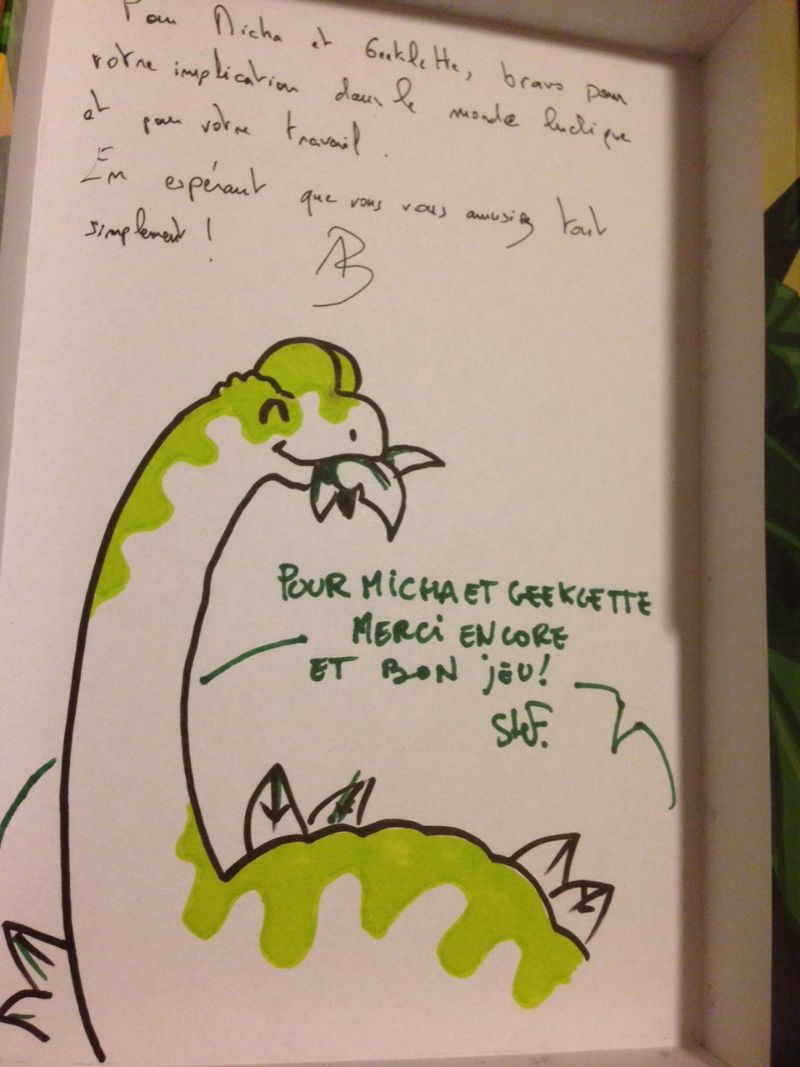 Pour Micha et Geeklette, bravo pour
votre implication dans le monde ludique
et pour votre travail.
En espérant que vous vous amusiez tout
simplement !
POUR MICHA ET GEEKLETTE
MERCI ENCORE
ET BON JEU!
Stef.